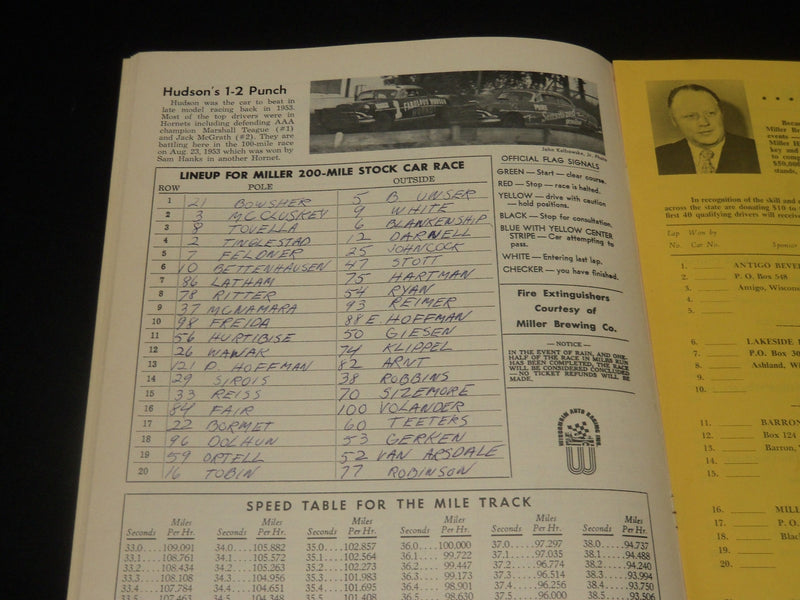 Hudson's 1-2 Punch
Hudson was the car to beat in
late model racing back in 1953.
Most of the top drivers were in
Hornets including defending AAA
champion Marshall Teague (#1)
and Jack McGrath (#2). They are
battling here in the 100-mile race
on Aug. 23, 1953 which was won by
Sam Hanks in another Hornet.
FABULOUS HUDSON
John Kalbowske, Jr. Photo
LINEUP FOR MILLER 200-MILE STOCK CAR RACE
ROW POLE OUTSIDE
1 21 BOWSHER 5 B UNSER
2 3 MCCLUSKEY 9 WHITE
3 8 TOVELLA 6 BLANKENSHIP
4 2 TINGLESTAD 12 DARNELL
5 7 FELDNER 25 JOHNCOCK
6 10 BETTENHAUSEN 47 STOTT
7 86 LATHAM 75 HARTMAN
8 78 RITTER 54 RYAN
9 37 MCNAMARA 93 REIMER
10 98 FREIDA 88 E. HOFFMAN
11 56 HURTIBISE 50 GIESEN
12 26 WAWAK 74 KLIPPEL
13 121 D. HOFFMAN 82 ARNT
14 29 SIROIS 38 ROBBINS
15 33 REISS 70 SIZEMORE
16 84 FAIR 100 VOLANDER
17 22 BORMET 60 TEETERS
18 96 DOLHUN 53 GERKEN
19 59 ORTELL 52 VAN ARSDALE
20 16 TOBIN 77 ROBINSON
OFFICIAL FLAG SIGNALS
GREEN — Start — clear course.
RED — Stop — race is halted.
YELLOW — drive with caution
— hold positions.
BLACK — Stop for consultation.
BLUE WITH YELLOW CENTER
STRIPE — Car attempting to
pass.
WHITE — Entering last lap.
CHECKER — you have finished.
Fire Extinguishers
Courtesy of
Miller Brewing Co.
— NOTICE —
IN THE EVENT OF RAIN, AND ONE-
HALF OF THE RACE IN MILES RUN
HAS BEEN COMPLETED, THE RACE
WILL BE CONSIDERED CONCLUDED
— NO TICKET REFUNDS WILL BE
MADE.
WISCONSIN AUTO RACING INC.
SPEED TABLE FOR THE MILE TRACK
Seconds Miles Per Hr. Seconds Miles Per Hr. Seconds Miles Per Hr. Seconds Miles Per Hr. Seconds Miles Per Hr. Seconds Miles Per Hr.
33.0....109.091 34.0....105.882 35.0....102.857 36.0....100.000 37.0....97.297 38.0....94.737
33.1....108.761 34.1....105.572 35.1....102.564 36.1....99.722 37.1....97.035 38.1....94.488
33.2....108.434 34.2....105.263 35.2....102.273 36.2....99.447 37.2....96.774 38.2....94.240
33.3....108.108 34.3....104.956 35.3....101.983 36.3....99.173 37.3....96.514 38.3....93.994
33.4....107.784 34.4....104.651 35.4....101.695 36.4....98.901 37.4....96.256 38.4....93.750
33.5....107.463 34.5....104.348 35.5....101.408 36.5....98.630 37.5....96.000 38.5....93.506
Beca
Miller Br
events —
Miller H
key and
to comp
$50,000
stands,
In recognition of the skill and
across the state are donating $10 to
first 40 qualifying drivers will receiv
Lap Won by
No. Car No. Sponsor
1. ANTIGO BEVE
2. P. O. Box 548
3. Antigo, Wiscons
4.
5.
6. LAKESIDE
7. P.O. Box 30
8. Ashland, W
9.
10.
11. BARRON
12. Box 124
13. Barron,
14.
15.
16. MILL
17. P. O.
18. Blac
19.
20.